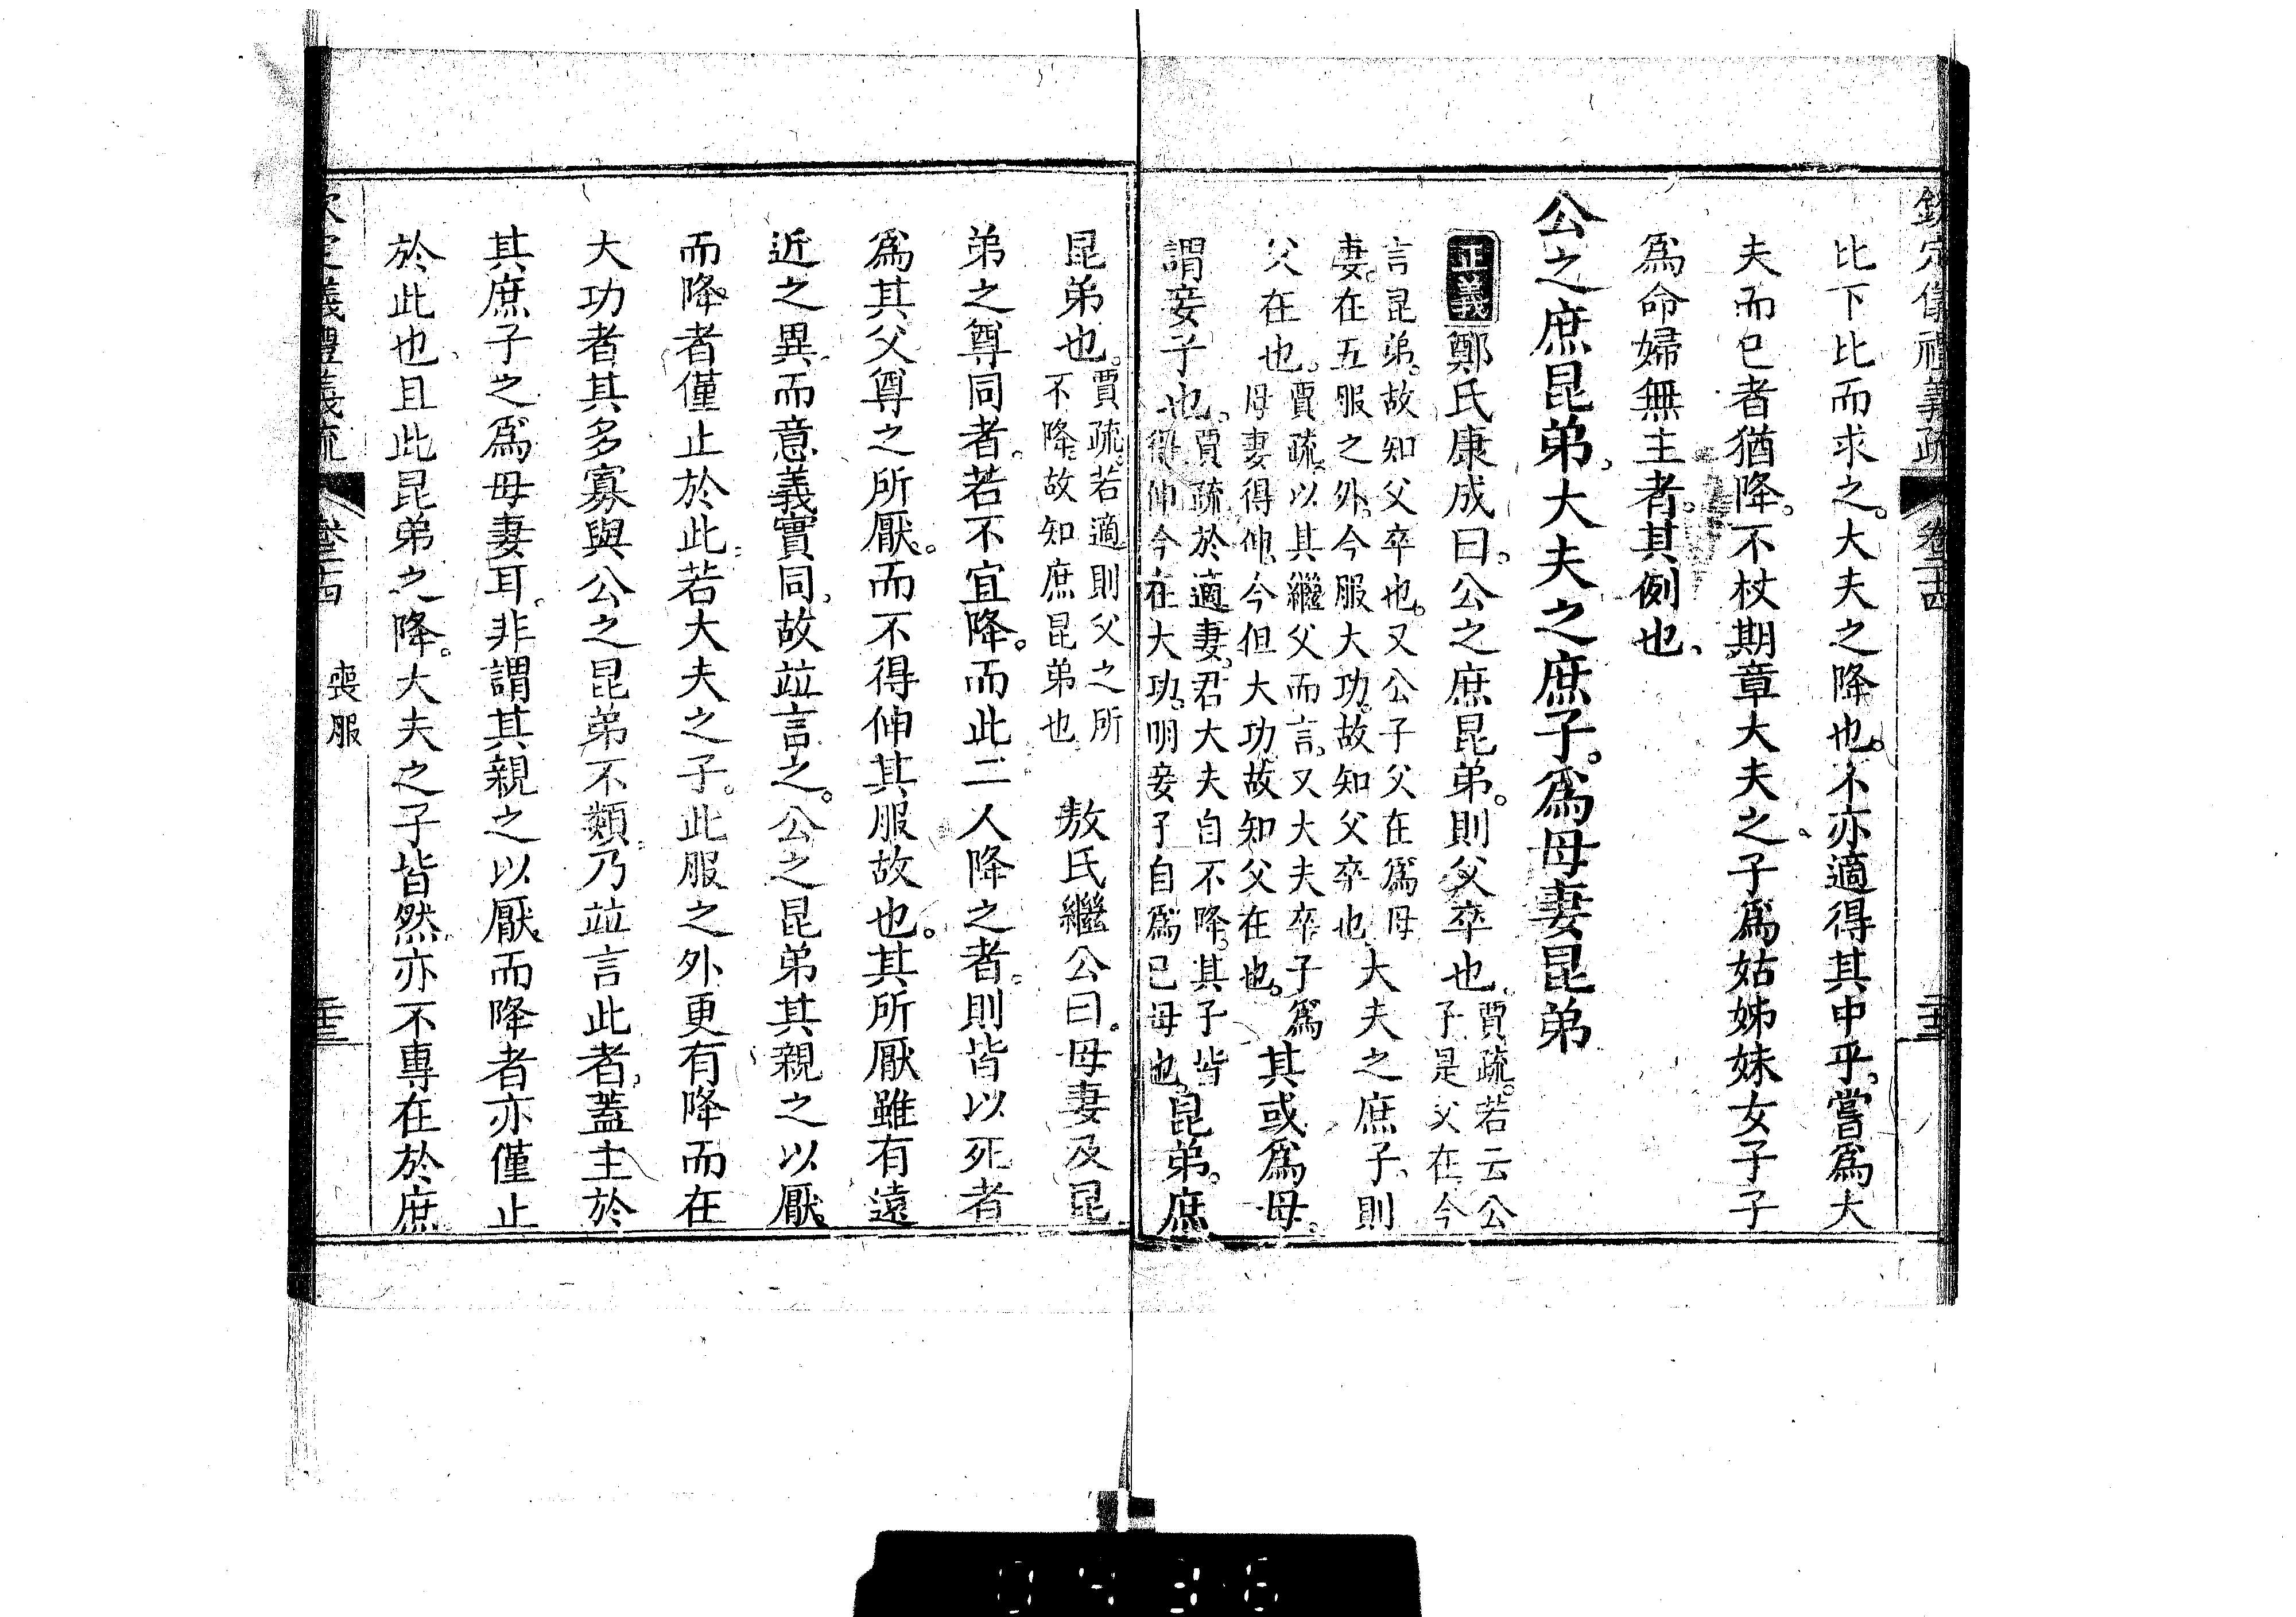 欽定儀禮義疏 卷二十四 二十三
比下比而求之。大夫之降也。不亦適得其中乎。嘗爲大
夫而已者猶降。不杖期章大夫之子爲姑姊妹女子子
爲命婦無主者。其例也。
公之庶昆弟。大夫之庶子。爲母妻昆弟
正義 鄭氏康成曰。公之庶昆弟。則父卒也。賈疏。若云公
子是父在今
言昆弟。故知父卒也。又公子父在爲母
妻。在五服之外。今服大功。故知父卒也。大夫之庶子。則
父在也。賈疏。以其繼父而言。又大夫卒子爲
母妻得伸。今但大功。故知父在也。其或爲母。
謂妾子也。賈疏於適妻。君大夫自不降。其子皆
得伸今在大功。明妾子自爲己母也。昆弟。庶
昆弟也。賈疏。若適則父之所
不降。故知庶昆弟也 敖氏繼公曰。母妻及昆
弟之尊同者。若不宜降。而此二人降之者。則皆以死者
爲其父尊之所厭。而不得伸其服故也。其所厭雖有遠
近之異。而意義實同。故竝言之。公之昆弟其親之以厭
而降者僅止於此。若大夫之子。此服之外更有降而在
大功者其多寡與公之昆弟不類。乃竝言此者。蓋主於
其庶子之爲母妻耳。非謂其親之以厭而降者亦僅止
於此也。且此昆弟之降。大夫之子皆然。亦不專在於庶
欽定儀禮義疏 卷二十四 喪服 二十三
0436